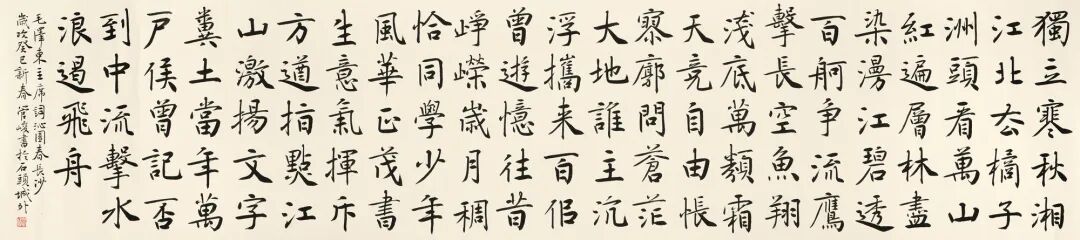 獨立寒秋湘
江北去橘子
洲頭看萬山
紅遍層林盡
染漫江碧透
百舸爭流鷹
擊長空魚翔
淺底萬類霜
天競自由悵
寥廓問蒼茫
大地誰主沉
浮攜來百侶
曾遊憶往昔
崢嶸歲月稠
恰同學少年
風華正茂書
生意氣揮斥
方遒指點江
山激揚文字
糞土當年萬
戶侯曾記否
到中流擊水
浪遏飛舟
毛澤東主席詞沁園春長沙
歲次癸巳新春管峻書於石頭城外